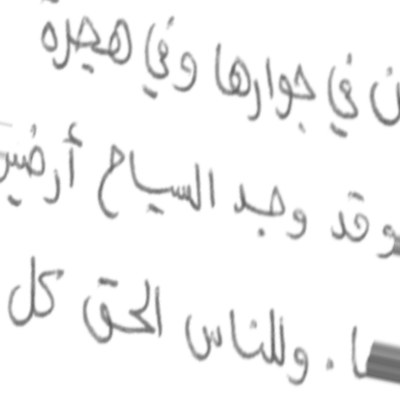 في جوارها وفي هجرة
وقد وجد السياح أرضين
ا . وللناس الحق كل